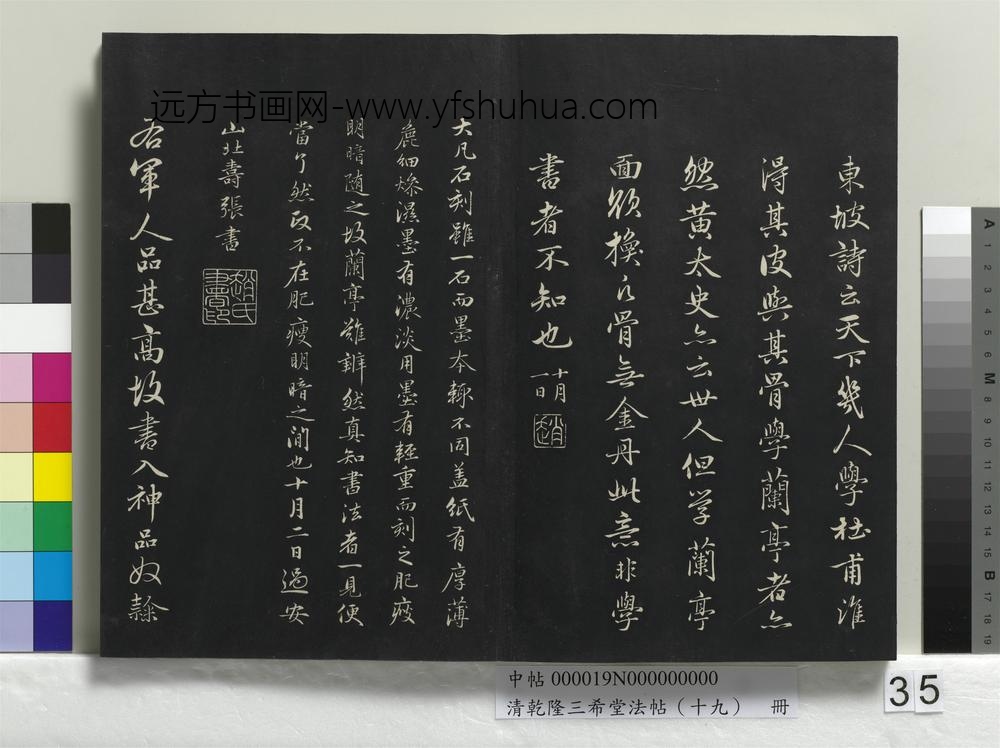 远方书画网-www.yfshuhua.com
東坡詩云天下幾人學杜甫誰
得其皮與其骨學蘭亭者亦
然黄太史亦云世人但学蘭亭
面欲換凡骨無金丹此意非學
書者不知也
十月
一日
趙
大凡石刻雖一石而墨本輒不同盖紙有厚薄
麁細燥濕墨有濃淡用墨有輕重而刻之肥瘦
明暗随之故蘭亭難辨然真知書法者一見便
當了然政不在肥瘦明暗之間也十月二日過安
山北壽張書
趙氏
書印
右軍人品甚高故書入神品奴隸
中帖 000019N000000000
清乾隆三希堂法帖（十九） 冊
35
A 1 2 3 4 5 6 M 8 9 10 11 12 13 14 15 B 17 18 19